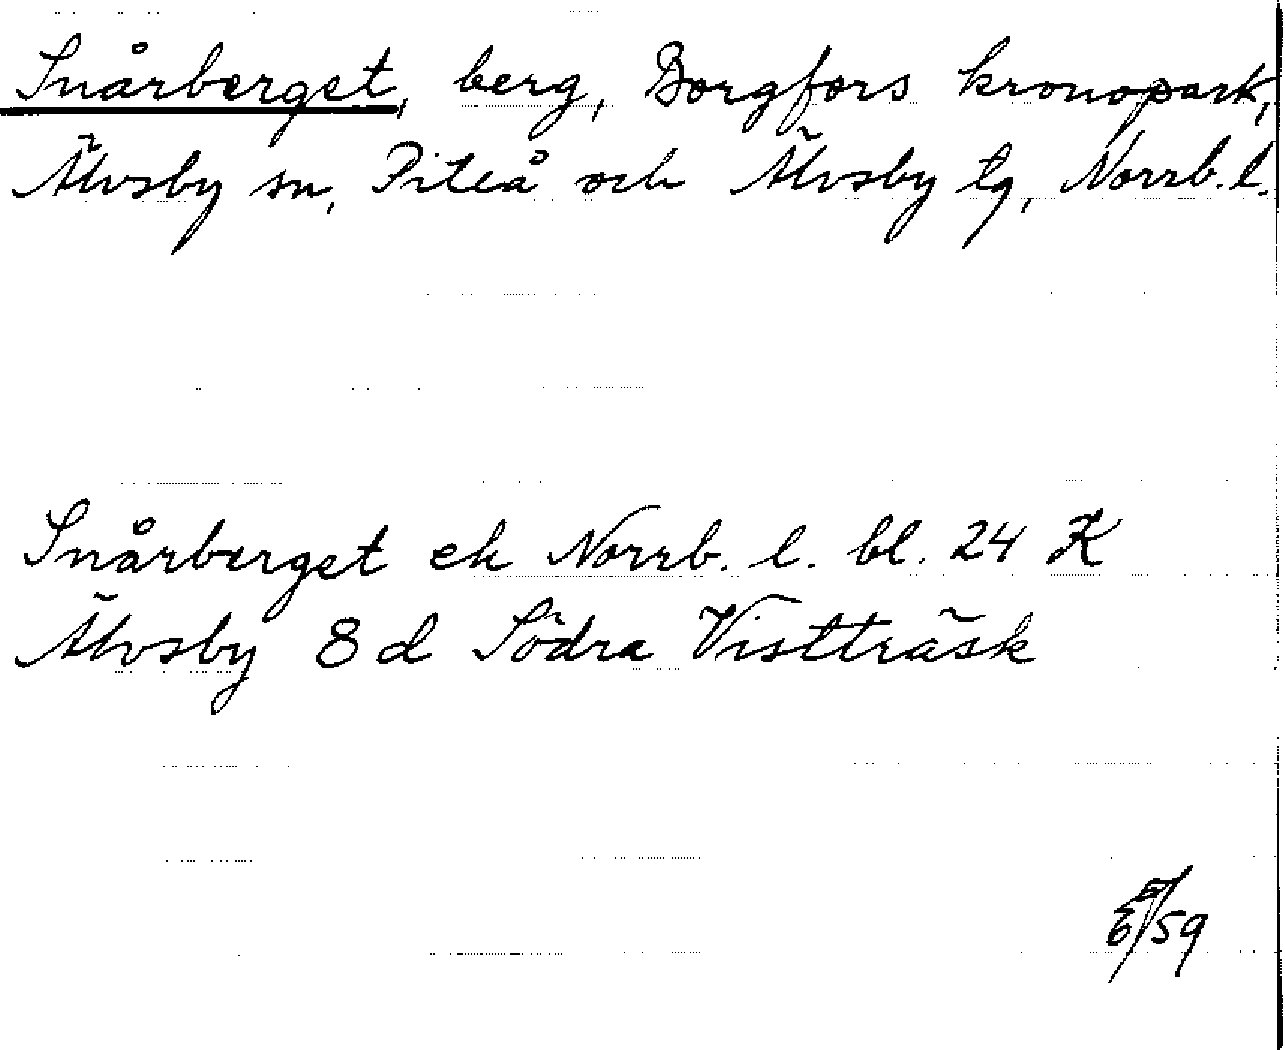 Snårberget, berg, Borgfors kronopark,
Älvsby sn, Piteå och Älvsby tg, Norrb. l.
Snårberget ek Norrb. l. bl. 24 K
Älvsby 8 d Södra Vistträsk